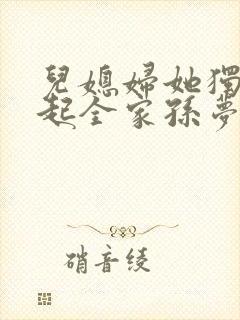 兒媳婦她獨
起全家孫夢
硝音綾